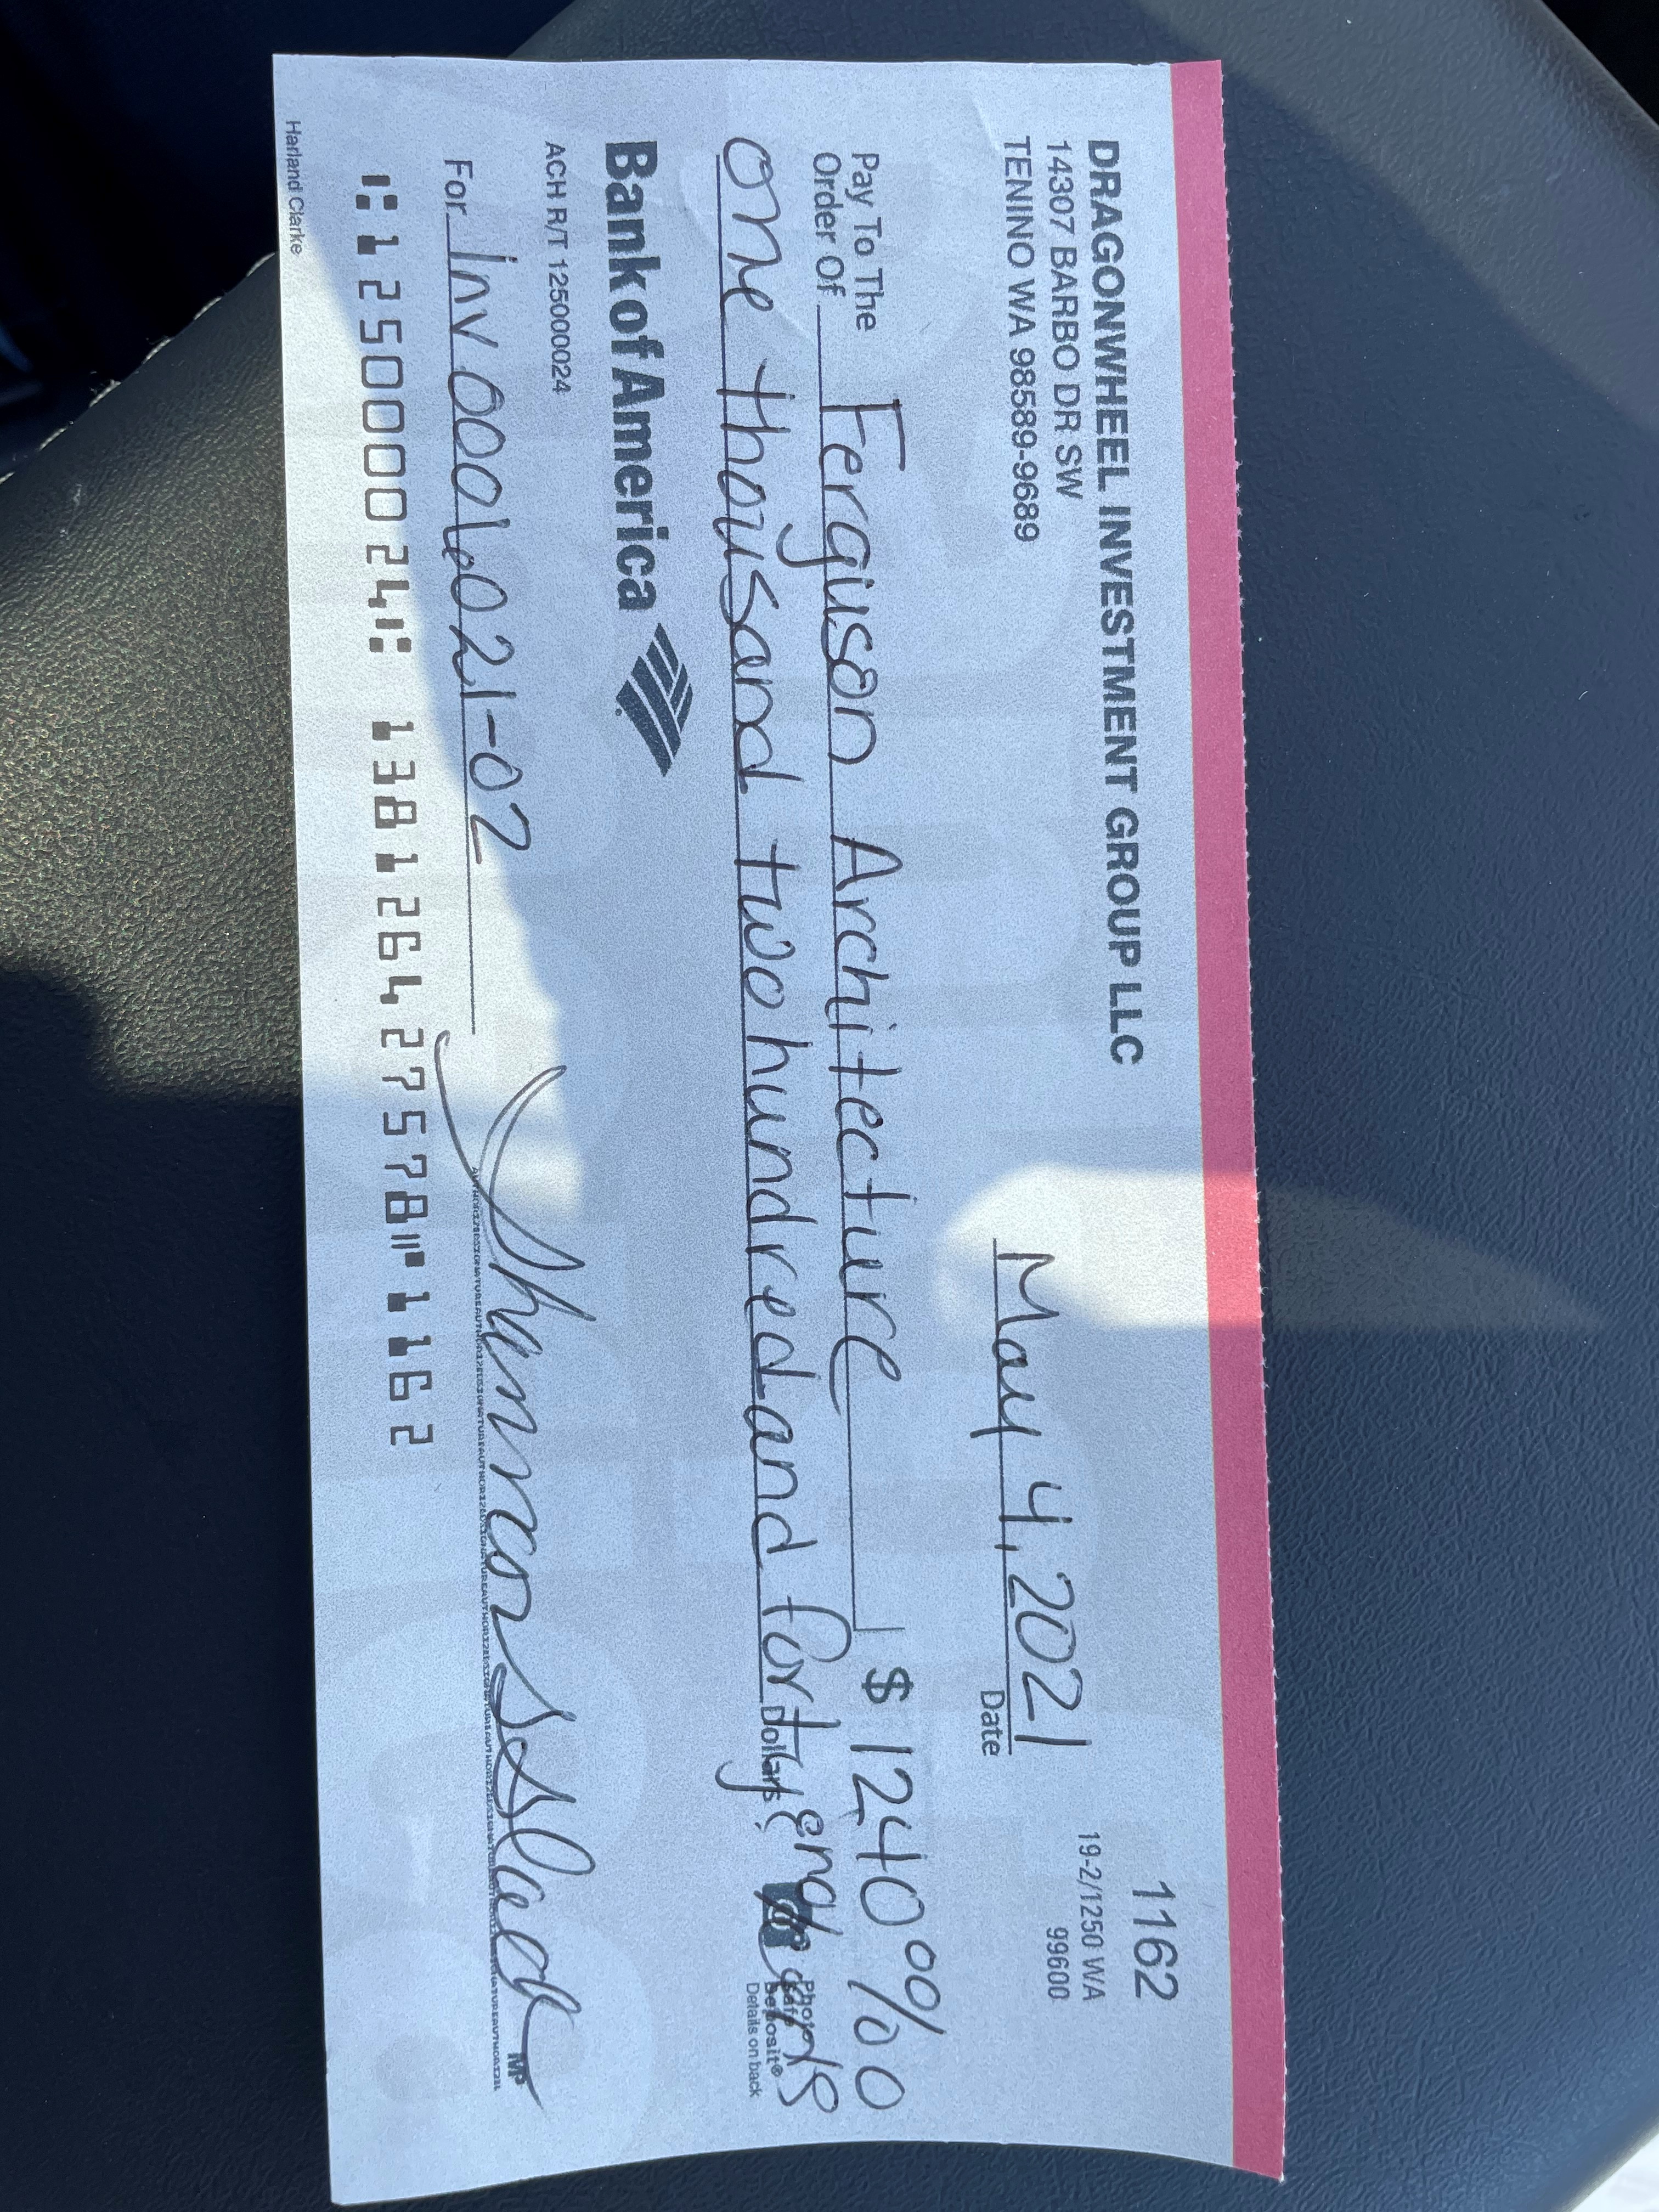 DRAGONWHEEL INVESTMENT GROUP LLC
14307 BARBO DR SW
TENINO WA 98589-9689
1162
19-2/1250 WA
99600
May 4, 2021
Date
Pay To The
Order Of Ferguson Architecture $ 1240 00/00
one thousand two hundred and forty
Dollars
Photo
Safe
Deposit®
Details on back
Bank of America
ACH R/T 125000024
For Inv 0001.021-02
MP
⑆125000024⑆ 138126427578⑈1162
Harland Clarke